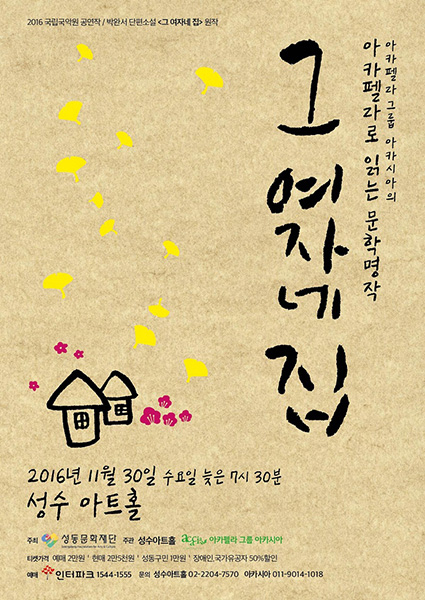 2016 국립국악원 공연작 / 박완서 단편소설 <그 여자네 집> 원작
아카펠라 그룹 아카시아의
아카펠라로 읽는 문학명작
그 여자네 집
2016년 11월 30일 수요일 늦은 7시 30분
성수 아트홀
주최 성동문화재단 주관 성수아트홀 아카펠라 그룹 아카시아
티켓가격 예매 2만원 · 현매 2만5천원 · 성동구민 1만원 · 장애인,국가유공자 50%할인
예매 인터파크 1544-1555 문의 성수아트홀 02-2204-7570 아카시아 011-9014-1018